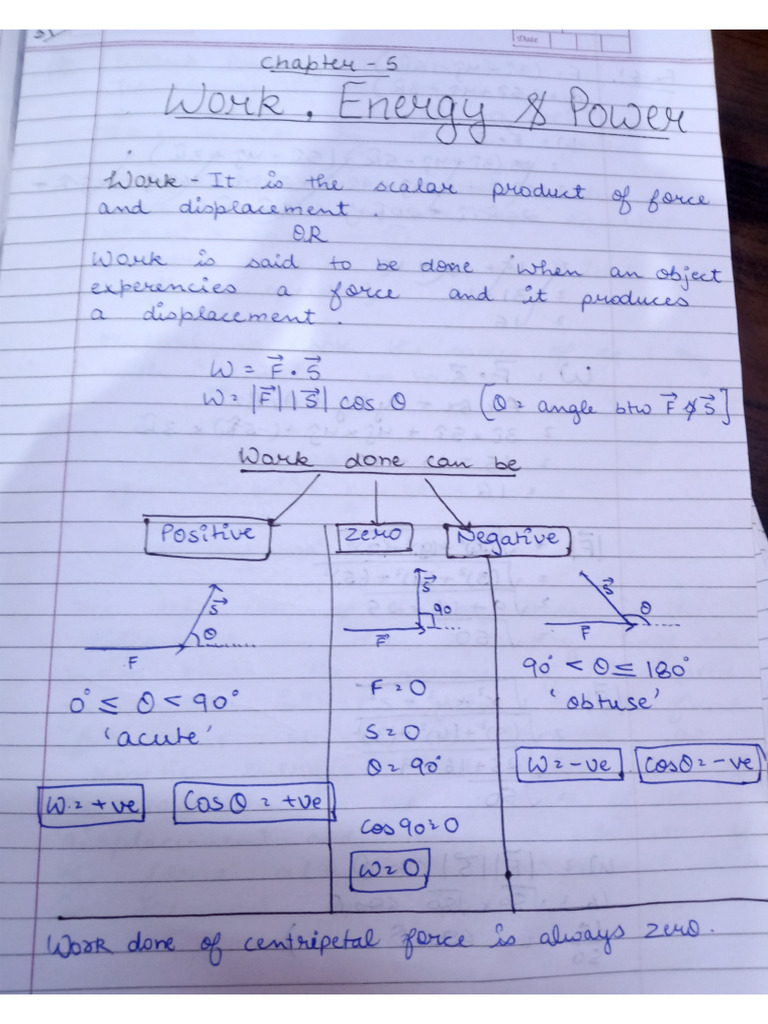 Date
Chapter - 5
Work, Energy & Power
Work - It is the scalar product of force
and displacement.
OR
Work is said to be done when an object
experencies a force and it produces
a displacement.
W = F⃗ . S⃗
W = |F⃗| |S⃗| cos θ [θ = angle btw F⃗ & S⃗]
Work done can be
Positive Zero Negative
S⃗ θ F
S⃗ 90 F⃗
S⃗ θ F⃗
0° ≤ θ < 90°
'acute'
W = +ve Cos θ = +ve
F = 0
S = 0
θ = 90°
cos 90 = 0
W = 0
90° < θ ≤ 180°
'obtuse'
W = -ve Cos θ = -ve
Work done of centripetal force is always zero.